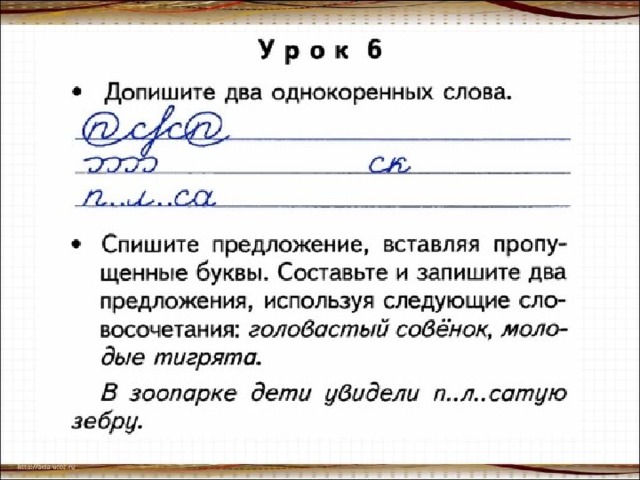 Урок 6
• Допишите два однокоренных слова.
ск
п..л..са
• Спишите предложение, вставляя пропу-
щенные буквы. Составьте и запишите два
предложения, используя следующие сло-
восочетания: головастый совёнок, моло-
дые тигрята.
В зоопарке дети увидели п..л..сатую
зебру.